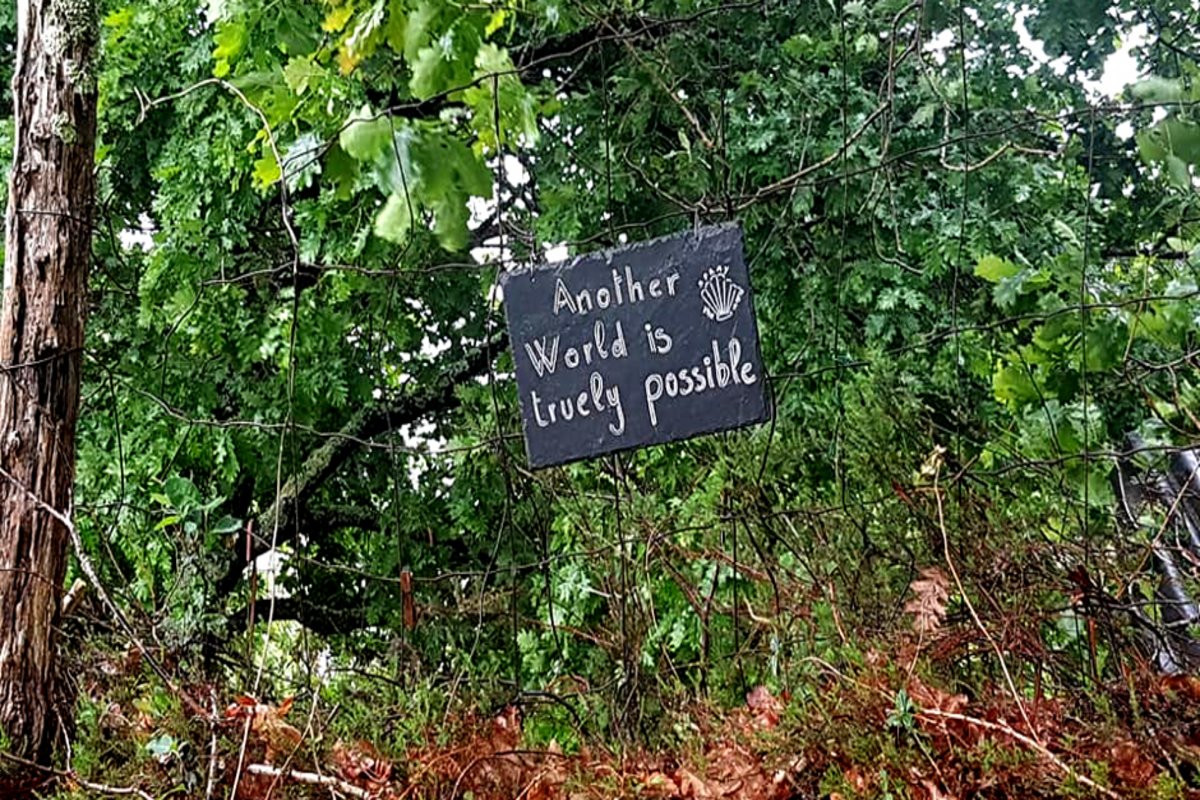 Another
World is
truely possible